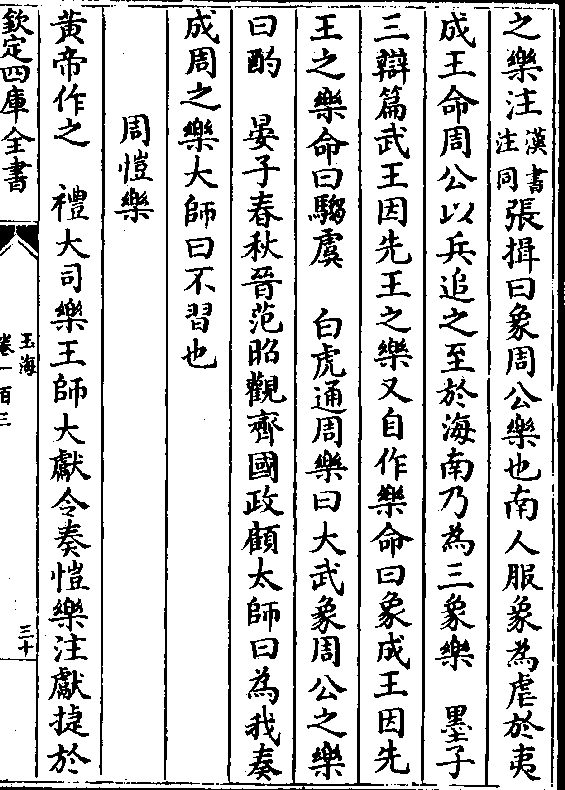 之樂注漢書注同張揖曰象周公樂也南人服象為虐於夷
成王命周公以兵追之至於海南乃為三象樂　墨子
三辯篇武王因先王之樂又自作樂命曰象成王因先
王之樂命曰騶虞　白虎通周樂曰大武象周公之樂
曰酌　晏子春秋晉范昭觀齊國政顧太師曰為我奏
成周之樂大師曰不習也
周愷樂
黃帝作之　禮大司樂王師大獻令奏愷樂注獻捷於
欽定四庫全書
玉海
卷一百三
三十